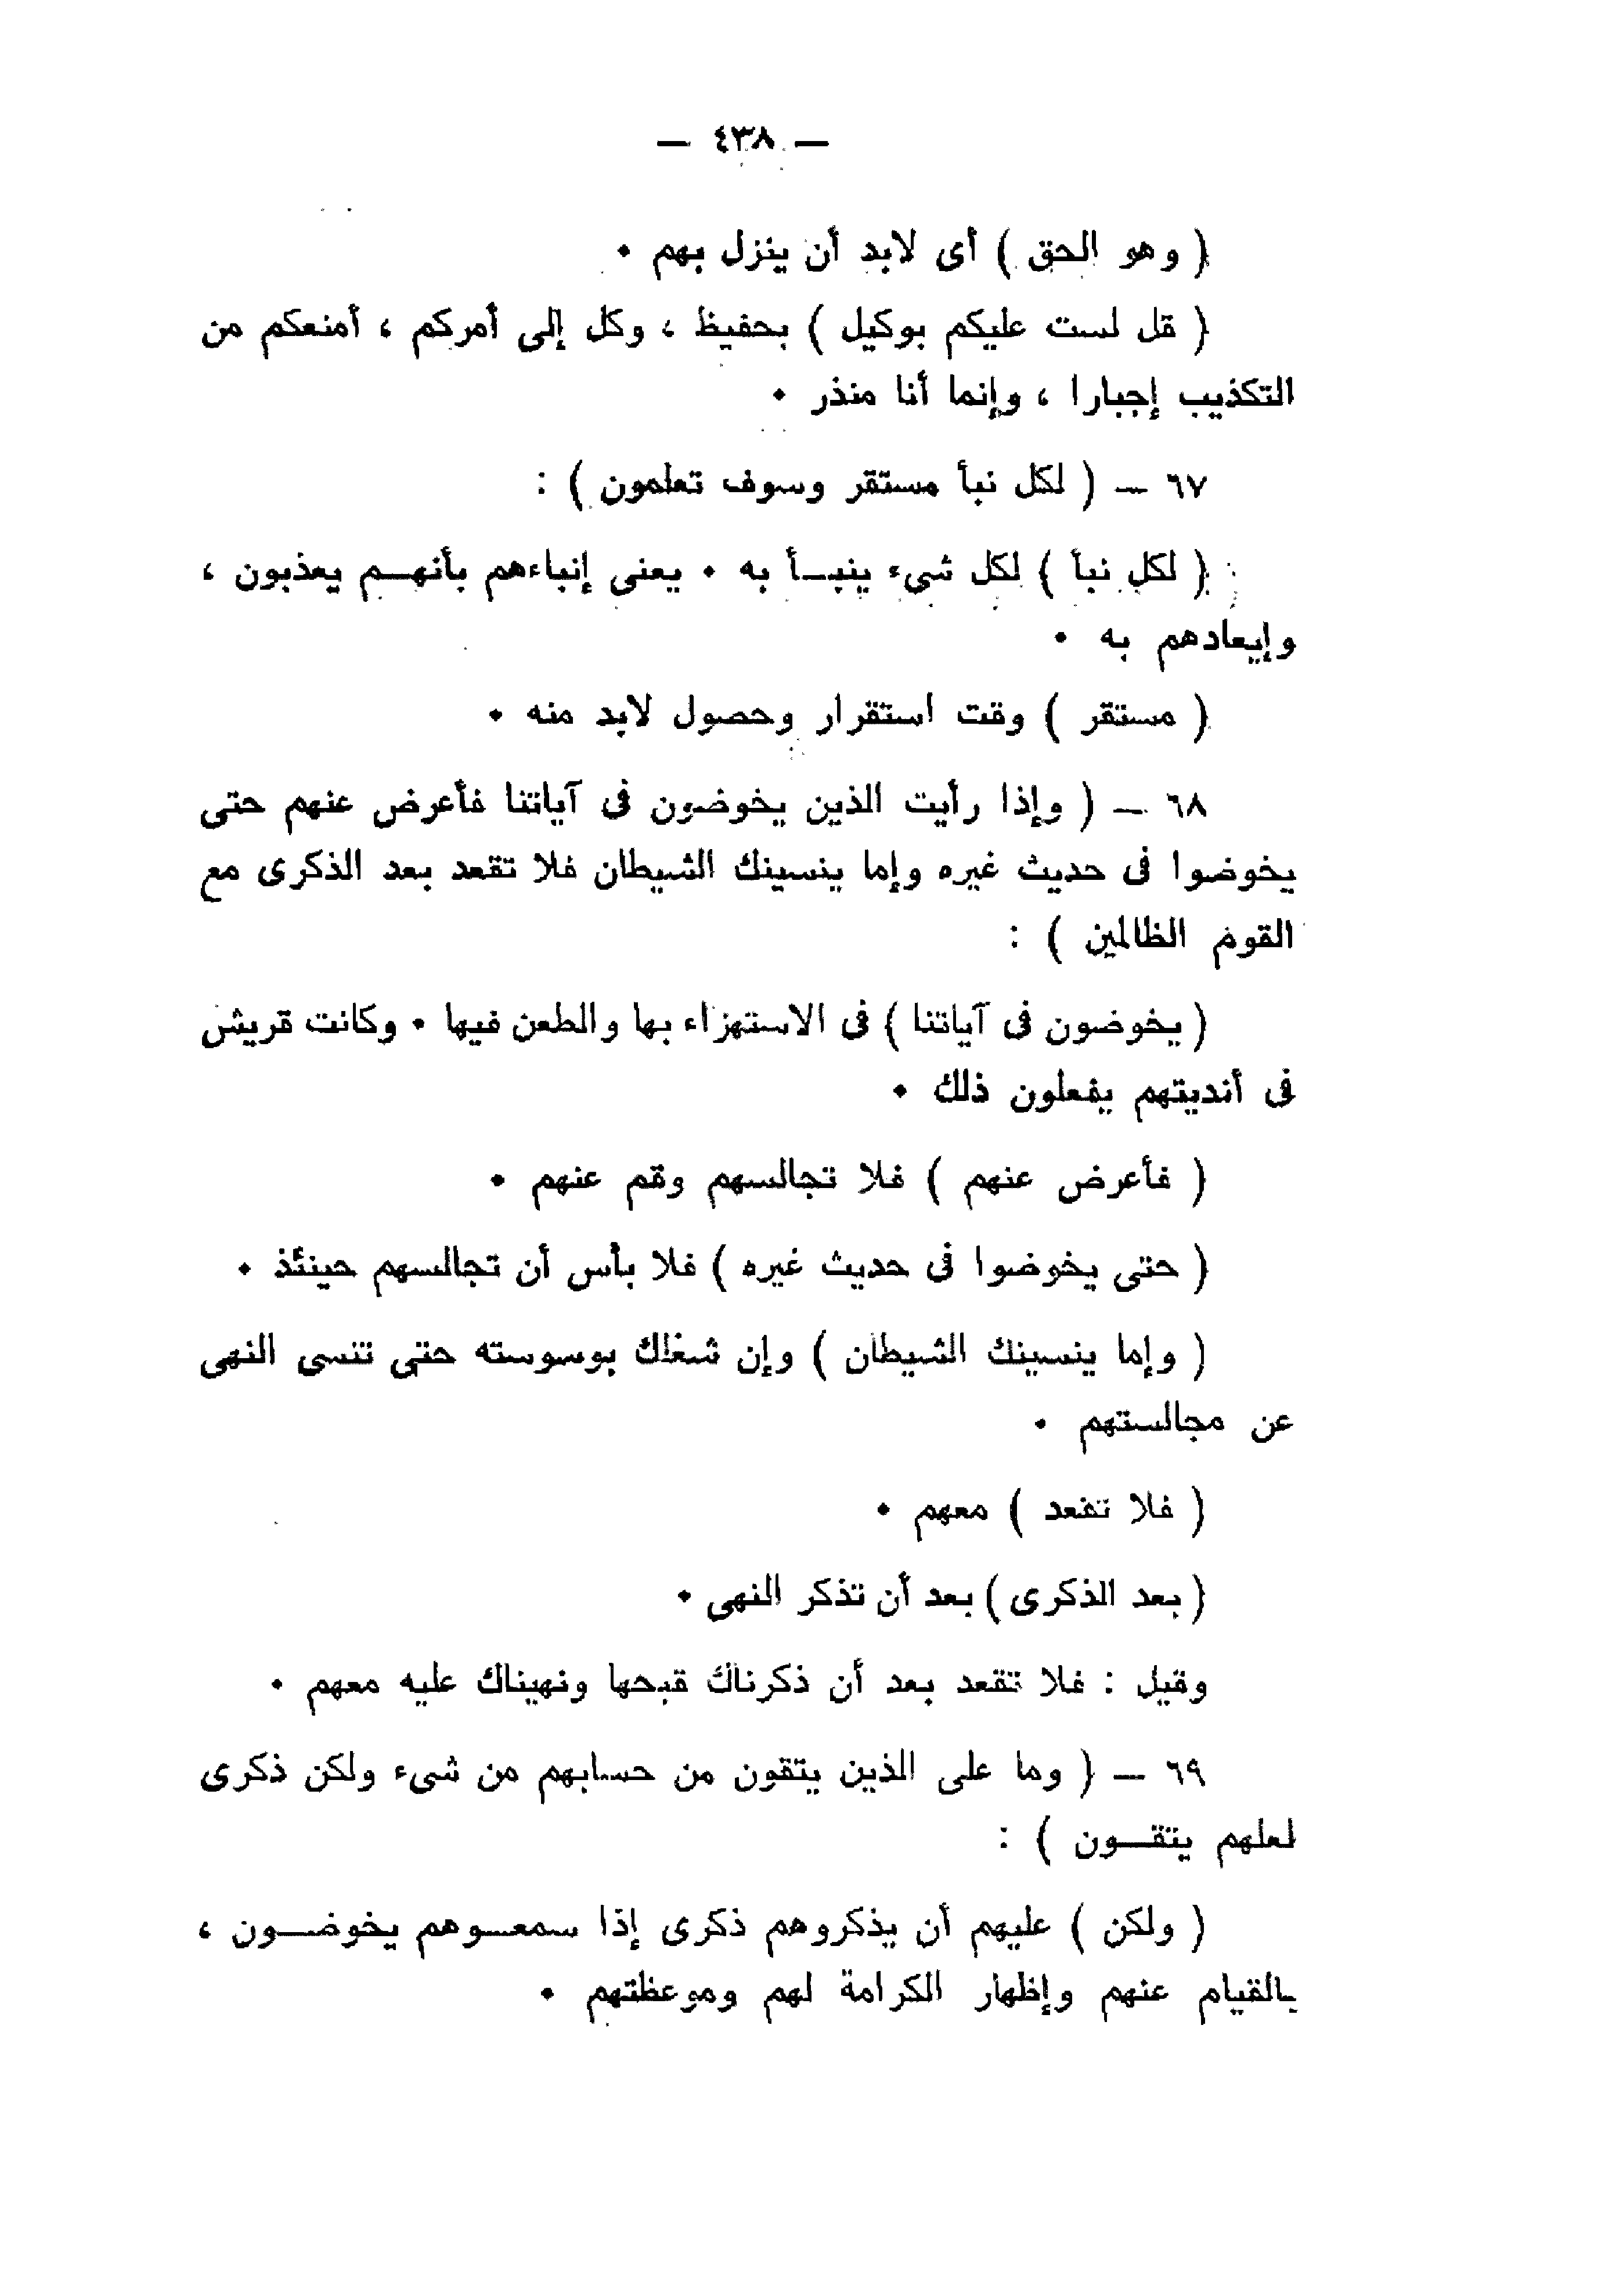 — ٤٣٨ —
( وهو الحق ) أى لابد أن ينزل بهم ٠
( قل لست عليكم بوكيل ) بحفيظ ، وكل إلى أمركم ، أمنعكم من
التكذيب إجبارا ، وإنما أنا منذر ٠
٦٧ — ( لكل نبأ مستقر وسوف تعلمون ) :
( لكل نبأ ) لكل شىء ينبـأ به ٠ يعنى إنباءهم بأنهـم يعذبون ،
وإيعادهم به ٠
( مستقر ) وقت استقرار وحصول لابد منه ٠
٦٨ — ( وإذا رأيت الذين يخوضون فى آياتنا فأعرض عنهم حتى
يخوضوا فى حديث غيره وإما ينسينك الشيطان فلا تقعد بعد الذكرى مع
القوم الظالمين ) :
( يخوضون فى آياتنا ) فى الاستهزاء بها والطعن فيها ٠ وكانت قريش
فى أنديتهم يفعلون ذلك ٠
( فأعرض عنهم ) فلا تجالسهم وقم عنهم ٠
( حتى يخوضوا فى حديث غيره ) فلا بأس أن تجالسهم حينئذ ٠
( وإما ينسينك الشيطان ) وإن شغلك بوسوسته حتى تنسى النهى
عن مجالستهم ٠
( فلا تقعد ) معهم ٠
( بعد الذكرى ) بعد أن تذكر النهى ٠
وقيل : فلا تقعد بعد أن ذكرناك قبحها ونهيناك عليه معهم ٠
٦٩ — ( وما على الذين يتقون من حسابهم من شىء ولكن ذكرى
لعلهم يتقــون ) :
( ولكن ) عليهم أن يذكروهم ذكرى إذا سمعـوهم يخوضــون ،
بالقيام عنهم وإظهار الكرامة لهم وموعظتهم ٠